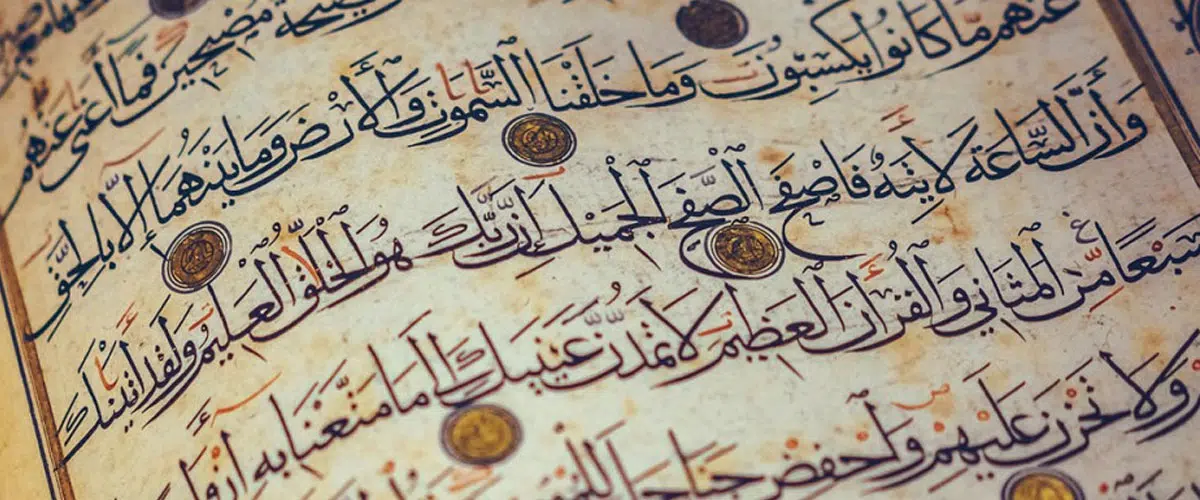 مصبحين فما أغنى عنهم
عنهم ما كانوا يكسبون وما خلقنا السموت والأرض وما بينهما إلا بالحق
وأن الساعة لاتية فاصفح الصفح الجميل إن ربك هو الخلق العليم ولقد اتينك
سبعا من المثاني والقرآن العظيم لا تمدن عينيك إلى ما متعنا به
ولا تحزن عليهم واخفض جناحك